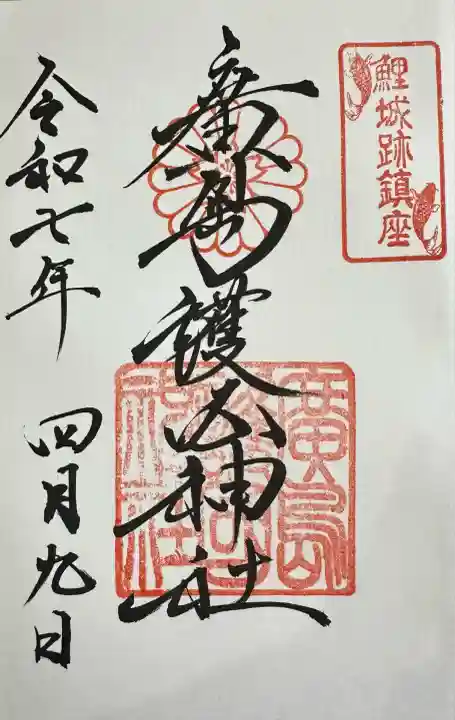 鯉城跡鎮座
廣島護国神社
廣島
護國
神社
令和七年 四月九日